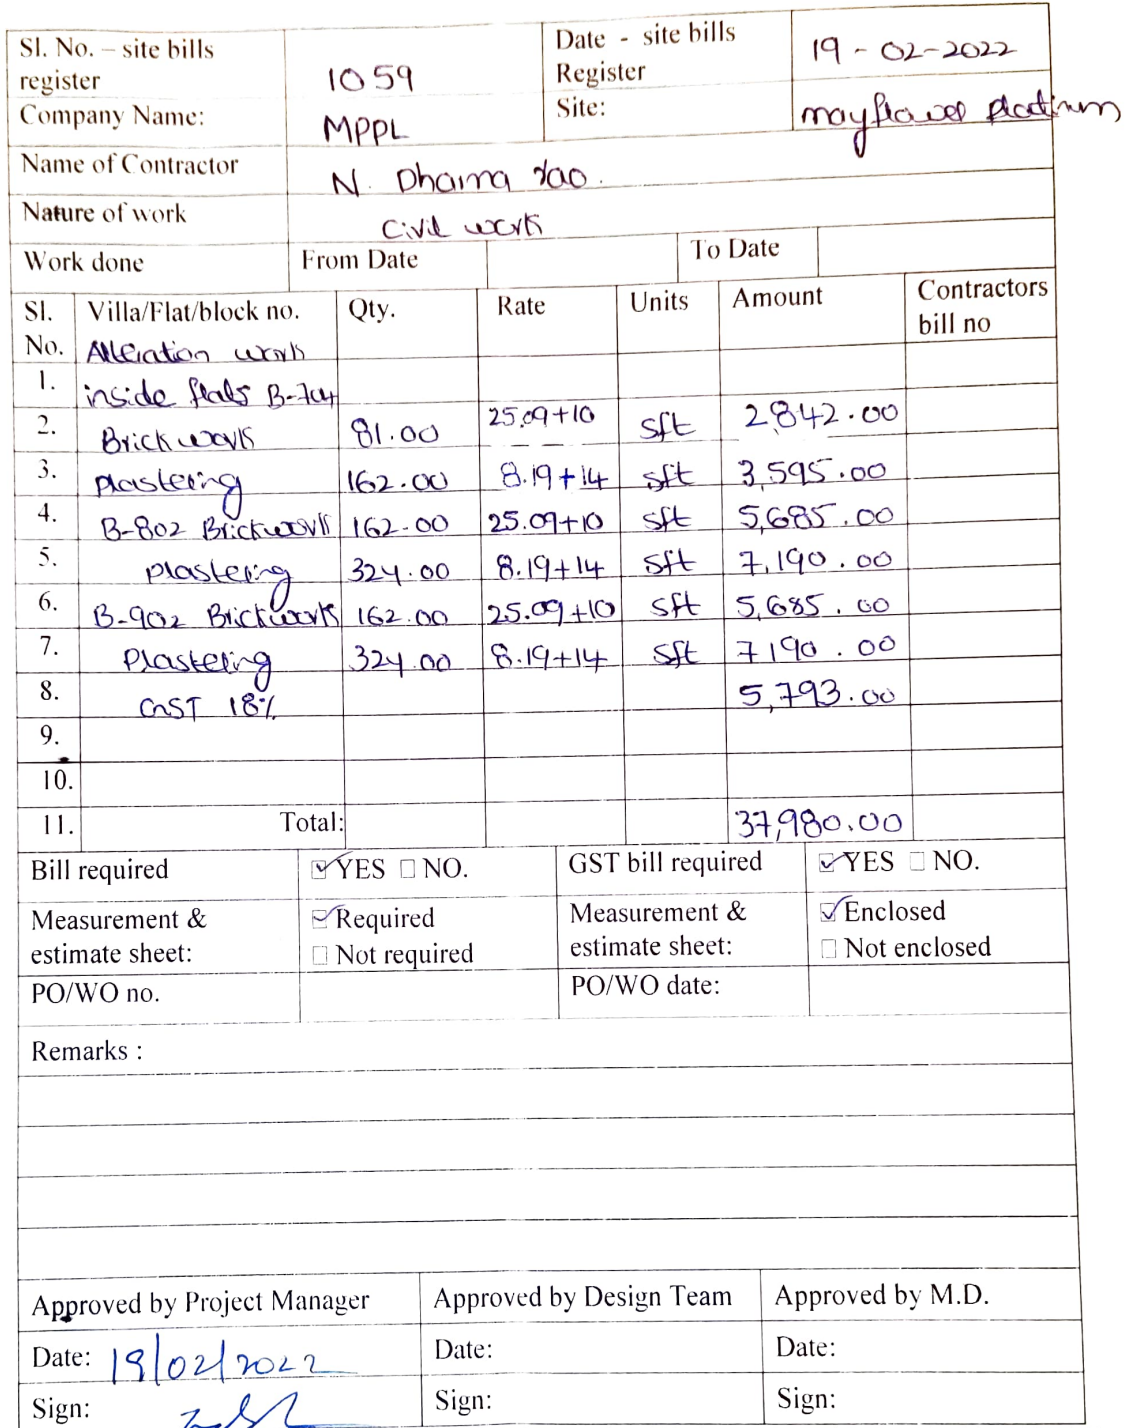 Sl. No. – site bills register 1059 Date - site bills Register 19-02-2022
Company Name: MPPL Site: mayflower platinum
Name of Contractor N. Dharma rao.
Nature of work Civil work
Work done From Date To Date
Sl. No. Villa/Flat/block no. Qty. Rate Units Amount Contractors bill no
Alteration work
1. inside flats B-704
2. Brick work 81.00 25.09+10 sft 2,842.00
3. plastering 162.00 8.19+14 sft 3,595.00
4. B-802 Brickwork 162.00 25.09+10 sft 5,685.00
5. plastering 324.00 8.19+14 sft 7,190.00
6. B-902 Brickwork 162.00 25.09+10 sft 5,685.00
7. Plastering 324.00 8.19+14 sft 7190.00
8. GST 18% 5,793.00
9.
10.
11. Total: 37,980.00
Bill required ☑ YES ☐ NO. GST bill required ☑ YES ☐ NO.
Measurement & estimate sheet: ☑ Required ☐ Not required Measurement & estimate sheet: ☑ Enclosed ☐ Not enclosed
PO/WO no. PO/WO date:
Remarks :
Approved by Project Manager Approved by Design Team Approved by M.D.
Date: 19/02/2022 Date: Date:
Sign: Sign: Sign: